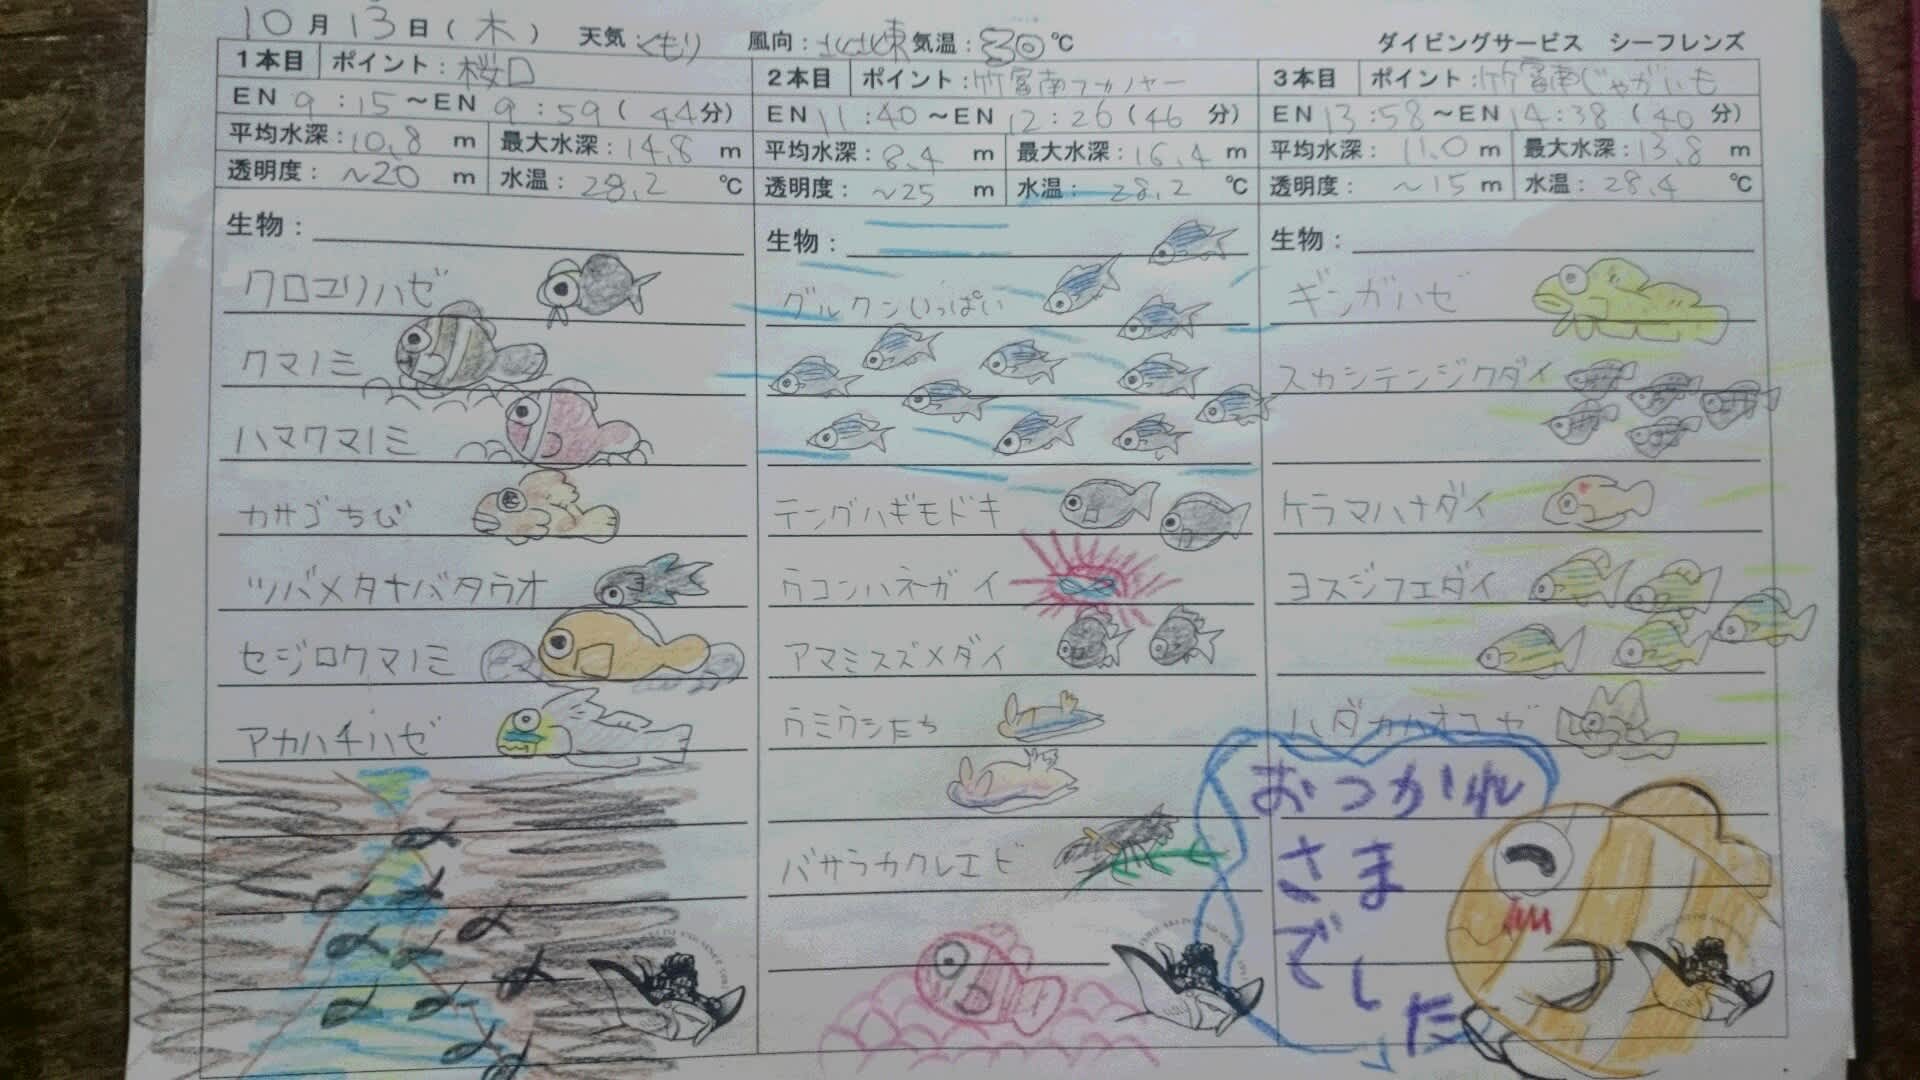 10月13日(木) 天気:くもり 風向:北北東 気温:30℃ ダイビングサービス シーフレンズ
1本目 ポイント:桜口
EN 9:15〜EN 9:59(44分)
平均水深:10.8 m 最大水深:14.8 m
透明度:〜20 m 水温:28.2 ℃
生物:
クロユリハゼ
クマノミ
ハマクマノミ
カサゴちび
ツバメタナバタウオ
セジロクマノミ
アカハチハゼ
2本目 ポイント:竹富南
EN 11:40〜EN 12:26(46分)
平均水深:8.4 m 最大水深:16.4 m
透明度:〜25 m 水温:28.2 ℃
生物:
グルクンいっぱい
テングハギモドキ
ウコンハネガイ
アマミスズメダイ
ウミウシたち
バサラカクレエビ
3本目 ポイント:竹富南じゃがいも
EN 13:58〜EN 14:38(40分)
平均水深:11.0 m 最大水深:13.8 m
透明度:〜15 m 水温:28.4 ℃
生物:
ギンガハゼ
スカシテンジクダイ
ケラマハナダイ
ヨスジフエダイ
ハダカハオコゼ
おつかれ
さま
でし
た